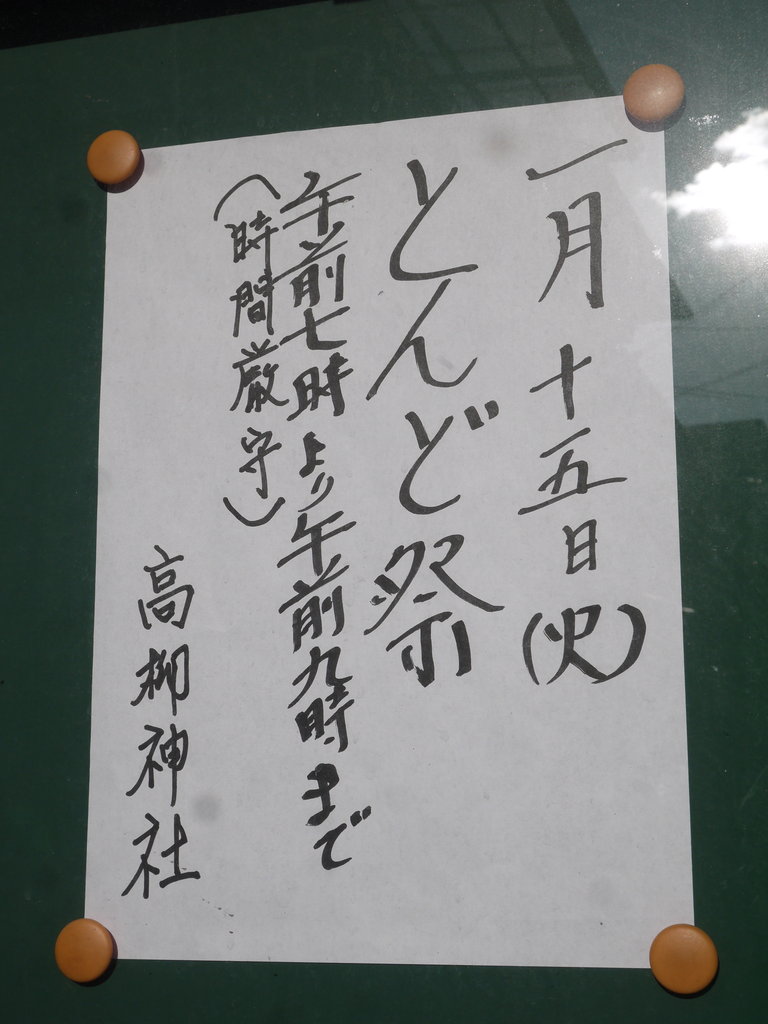 一月十五日(火)
とんど祭
午前七時より午前九時まで
(時間厳守)
高柳神社